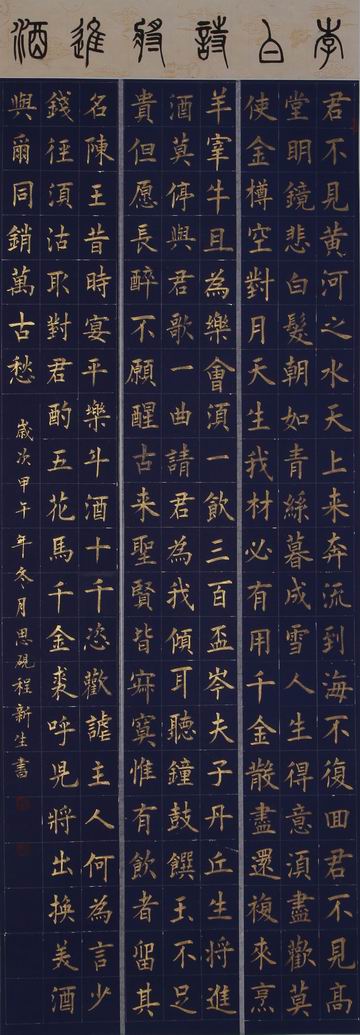 李白詩將進酒
君不見黃河之水天上来奔流到海不復囬君不見高
堂明鏡悲白髮朝如青絲暮成雪人生得意須盡歡莫
使金樽空對月天生我材必有用千金散盡還複來烹
羊宰牛且為樂會須一飲三百盃岑夫子丹丘生將進
酒莫停與君歌一曲請君為我傾耳聽鐘鼓饌玉不足
貴但愿長醉不願醒古来聖賢皆寂寞惟有飲者留其
名陳王昔時宴平樂斗酒十千恣歡謔主人何為言少
錢徑須沽取對君酌五花馬千金裘呼兒將出換美酒
與爾同銷萬古愁
歲次甲午年冬月思硯程新生書